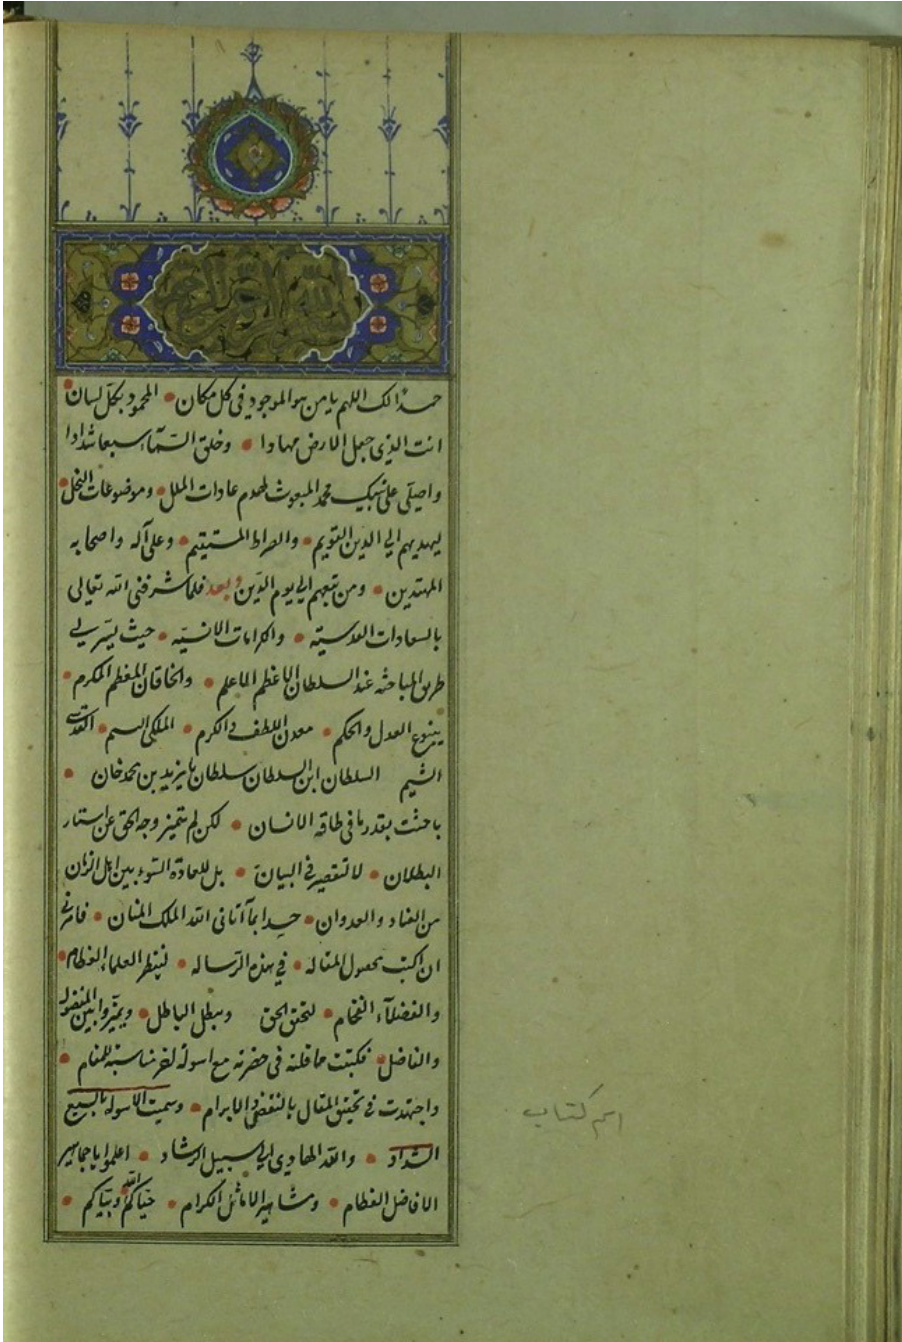 حمدا لك اللهم يا من هو الموجود في كل مكان المحمود بكل لسان
انت الذي جعل الارض مهادا وخلق السّمآء سبعا شدادا
واصلّى على نبيك محمد المبعوث لهدم عادات الملل وموضوعات النحل
ليهديهم الى الدين القويم والصراط المستقيم وعلى آله واصحابه
المهتدين ومن تبعهم الى يوم الدّين وبعد فلما شرفنى الله تعالى
بالسعادات القدسيّه والكرامات الانسيّه حيث يسّر لي
طريق المباحثه عند السلطان الاعظم الاعلم والخاقان المعظم المكرم
ينبوع العدل والحكم معدن اللطف والكرم الملكى القدسى
الشيم السلطان ابن السلطان سلطان بايزيد بن محمد خان
باحثت بقدر ما في طاقة الانسان لكن لم يتميز وجه الحق عن استار
البطلان لا لتقصير في البيان بل للعادة السّوء بين اهل الزمان
من العناد والعدوان حسدا بمآ آتانى الله الملك المنان فامرنى
ان اكتب محصول المقاله في هذه الرّساله لينظر العلماء العظام
والفضلآء الفخام لتحقق الحق وبطل الباطل ويميّزوا بين المفضول
والفاضل فكتبت ما قلته في حضرته مع اسولة اخر مناسبة للمقام
واجتهدت في تحقيق المقال بالنقض والابرام وسميت الاسولة بالسبع
الشداد والله الهادى الى سبيل الرشاد اعلموا يا جماهير
الافاضل العظام ومشاهير الاماثل الكرام حيّاكم الله وبيّاكم
اسم كتاب